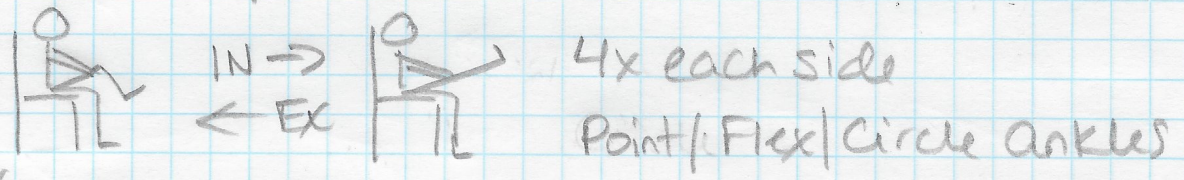 IN → 4x each side
← Ex Point/Flex/Circle ankles